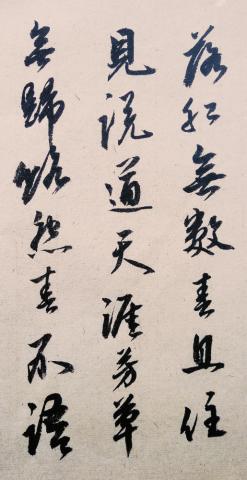 落紅無數春且住
見說道天涯芳草
無歸路怨春不語